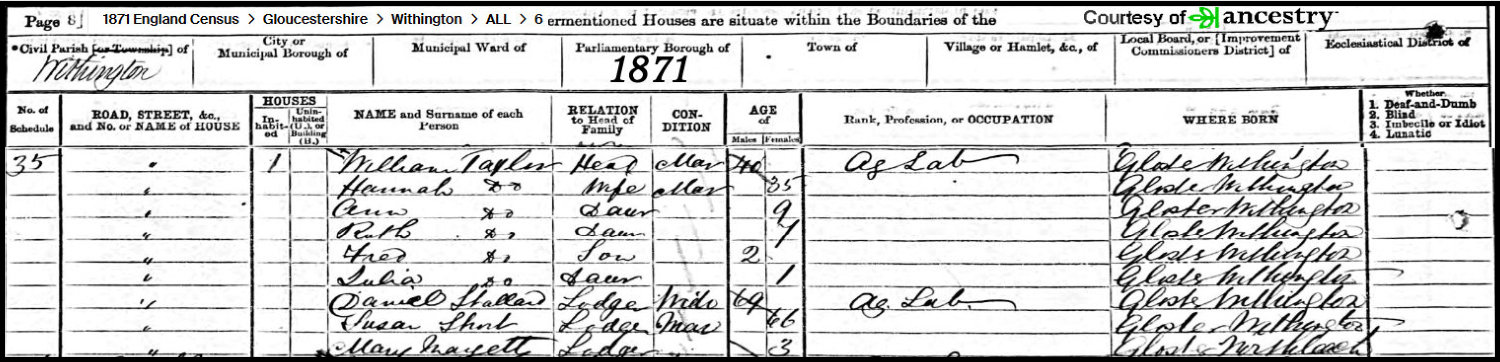 Page 8] 1871 England Census > Gloucestershire > Withington > ALL > 6 ermentioned Houses are situate within the Boundaries of the Courtesy of ancestry
*Civil Parish [or Township] of City or Municipal Borough of Municipal Ward of Parliamentary Borough of Town of Village or Hamlet, &c., of Local Board, or [Improvement Commissioners District] of Ecclesiastical District of
Withington 1871
No. of Schedule ROAD, STREET, &c., and No. or NAME of HOUSE HOUSES In-habit-ed Unin-habited (U.), or Building (B.) NAME and Surname of each Person RELATION to Head of Family CON-DITION AGE of Males Females Rank, Profession, or OCCUPATION WHERE BORN Whether 1. Deaf-and-Dumb 2. Blind 3. Imbecile or Idiot 4. Lunatic
35 " 1 William Taylor Head Mar 40 Ag Lab Gloster Withington
" Hannah Do Wife Mar 35 Gloster Withington
" Ann Do Daur 9 Gloster Withington
" Ruth Do Daur 7 Gloster Withington
" Fred Do Son 2 Gloster Withington
" Julia Do Daur 1 Gloster Withington
" Daniel Stallard Lodger Wido 69 Ag Lab Gloster Withington
" Susan Short Lodger Mar 66 Gloster Withington
" Mary Lodger 3 Gloster Northleach